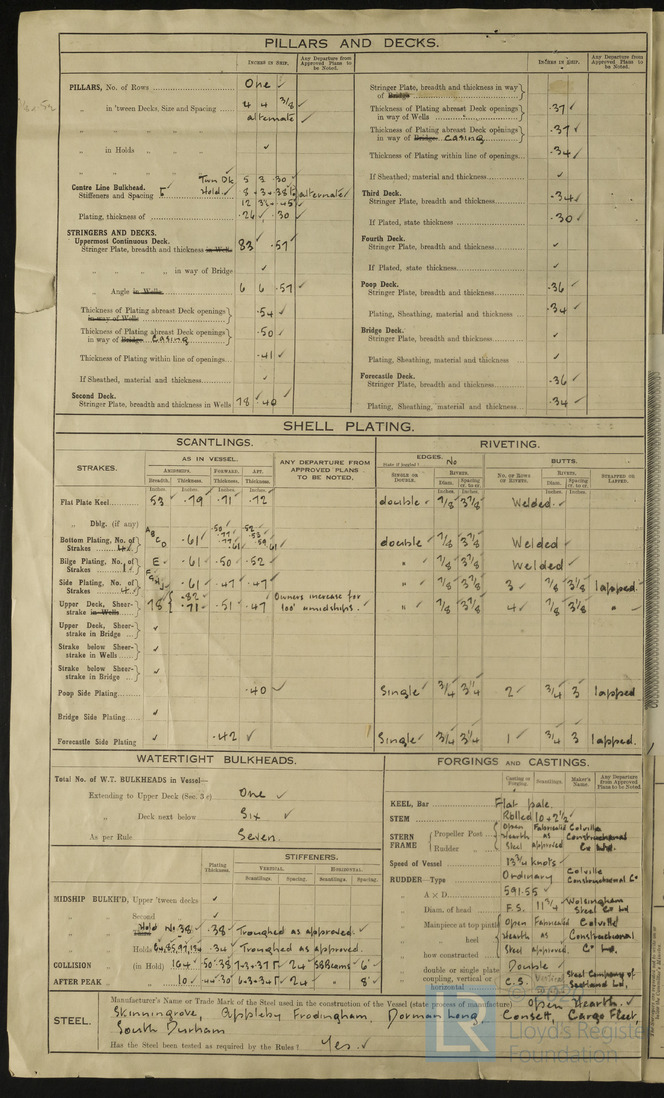 PILLARS AND DECKS.
INCHES IN SHIP.
Any Departure from Approved Plans to be Noted.
PILLARS, No. of Rows One
„ in 'tween Decks, Size and Spacing 4 4 3/8
alternate
„ in Holds „ „
Twn Dk 5 3 .30
Centre Line Bulkhead. Hold. 8 . 3 . 38 alternate
Stiffeners and Spacing
Plating, thickness of .26 .30
STRINGERS AND DECKS.
Uppermost Continuous Deck.
Stringer Plate, breadth and thickness in Wells 83 .57
„ „ „ „ in way of Bridge
„ Angle in Wells 6 6 .57
Thickness of Plating abreast Deck openings in way of Wells .54
Thickness of Plating abreast Deck openings in way of Bridge Casing .50
Thickness of Plating within line of openings .41
If Sheathed, material and thickness
Second Deck.
Stringer Plate, breadth and thickness in Wells 78 .40
INCHES IN SHIP.
Any Departure from Approved Plans to be Noted.
Stringer Plate, breadth and thickness in way of Bridge
Thickness of Plating abreast Deck openings in way of Wells .37
Thickness of Plating abreast Deck openings in way of Bridge Casing .37
Thickness of Plating within line of openings .34
If Sheathed, material and thickness
Third Deck.
Stringer Plate, breadth and thickness .34
If Plated, state thickness .30
Fourth Deck.
Stringer Plate, breadth and thickness
If Plated, state thickness
Poop Deck.
Stringer Plate, breadth and thickness .36
Plating, Sheathing, material and thickness .34
Bridge Deck.
Stringer Plate, breadth and thickness
Plating, Sheathing, material and thickness
Forecastle Deck.
Stringer Plate, breadth and thickness .36
Plating, Sheathing, material and thickness .34
SHELL PLATING.
SCANTLINGS.
RIVETING.
STRAKES.
AS IN VESSEL.
ANY DEPARTURE FROM APPROVED PLANS TO BE NOTED.
AMIDSHIPS. FORWARD. AFT.
Breadth. Thickness. Thickness. Thickness.
EDGES. No
State if joggled ?
BUTTS.
SINGLE OR DOUBLE. RIVETS. Diam. Spacing cr. to cr.
NO. OF ROWS OF RIVETS. RIVETS. Diam. Spacing cr. to cr. STRAPPED OR LAPPED.
Flat Plate Keel 53 .79 .71 .72 double 7/8 3 7/8 Welded.
„ Dblg. (if any)
Bottom Plating, No. of Strakes 4 A B C D .61 double 7/8 3 7/8 Welded
Bilge Plating, No. of Strakes 1 E .61 .50 .52 „ 7/8 3 7/8 Welded
Side Plating, No. of Strakes 4 .61 .47 .47 „ 7/8 3 7/8 3 7/8 3 1/8 lapped
Upper Deck, Sheerstrake in Wells 78 .82 .71 .51 .47 Owners increase for 100' amidships. „ 7/8 3 7/8 4 7/8 3 1/8 „
Upper Deck, Sheerstrake in Bridge
Strake below Sheerstrake in Wells
Strake below Sheerstrake in Bridge
Poop Side Plating .40 Single 3/4 3 1/4 2 3/4 3 lapped
Bridge Side Plating
Forecastle Side Plating .42 Single 3/4 3 1/4 1 3/4 3 lapped.
WATERTIGHT BULKHEADS.
Total No. of W.T. BULKHEADS in Vessel—
Extending to Upper Deck (Sec. 3 c) One
„ Deck next below Six
As per Rule Seven.
Plating Thickness.
STIFFENERS.
VERTICAL. HORIZONTAL
Scantlings. Spacing. Scantlings. Spacing.
MIDSHIP BULKH'D, Upper 'tween decks
„ Second „
Hold No 38 .38 Troughed as approved.
„ Holds .34 Troughed as approved.
COLLISION „ (in Hold) 164 24 SB Beams 6'
AFTER PEAK „ „ 10 24 „ 8'
FORGINGS AND CASTINGS.
Casting or Forging. Scantlings. Maker's Name. Any Departure from Approved Plans to be Noted
KEEL, Bar Flat plate
STEM Rolled 10 × 2 1/2
STERN FRAME { Propeller Post Open Hearth Steel Fabricated as Approved Colville Constructional Co Ltd.
Rudder „
Speed of Vessel 13 3/4 knots
RUDDER—Type Ordinary Colville Constructional Co
„ A × D 591.55
„ Diam. of head F.S. 11 3/4 Wolsingham Steel Co Ltd
„ Mainpiece at top pintle Open Fabricated Colville
„ „ heel Hearth as Constructional
„ how constructed Steel Approved. Co Ltd.
„ double or single plate Double
„ coupling, vertical or horizontal C.S. Vertical Steel Company of Scotland Ltd,
STEEL.
Manufacturer's Name or Trade Mark of the Steel used in the construction of the Vessel (state process of manufacture) Open Hearth.
Skinningrove, Appleby Frodingham, Dorman Long, Consett, Cargo Fleet,
South Durham
Has the Steel been tested as required by the Rules ? Yes.
Lloyd's Register
Foundation